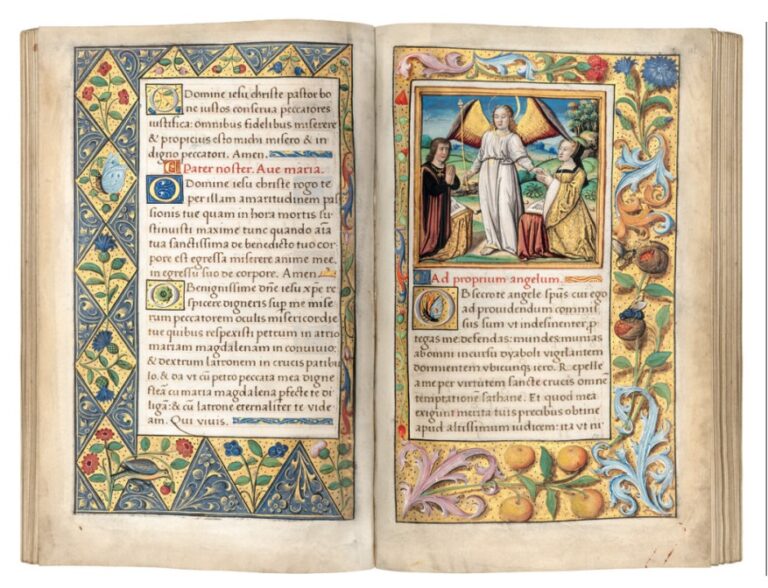 Domine iesu christe pastor bo
ne iustos conserua peccatores
iustifica: omnibus fidelibus miserere
& propicius esto michi misero & in
digno peccatori. Amen.
Pater noster. Aue maria.
O Domine iesu christe rogo te
per illam amaritudinem pas
sionis tue quam in hora mortis su
stinuisti maxime tunc quando aīa
tua sanctissima de benedicto tuo cor
pore est egressa miserere anime mee
in egressu suo de corpore. Amen
Benignissime dn̄e iesu xp̄e re
spicere digneris sup me mise
rum peccatorem oculis misericordie
tue quibus respexisti petrum in atrio
mariam magdalenam in conuiuio:
& dextrum latronem in crucis patibu
lo. & da vt cū petro peccata mea digne
fleā cu maria magdalena pfecte te di
ligā: & cū latrone eternaliter te vide
am. Qui viuis.
Ad proprium angelum.
OBsecro te angele spūs cui ego
ad prouidendum commis
sus sum vt indesinenter, p
tegas me defendas: mundes: munias
ab omni incursu dyaboli vigilantem
dormientem vbicunqꝫ iero. Repelle
a me per virtutem sancte crucis omnē
temptationem sathane. Et quod mea
exigunt merita tuis precibus obtine
apud altissimum iudicem: ita vt ni